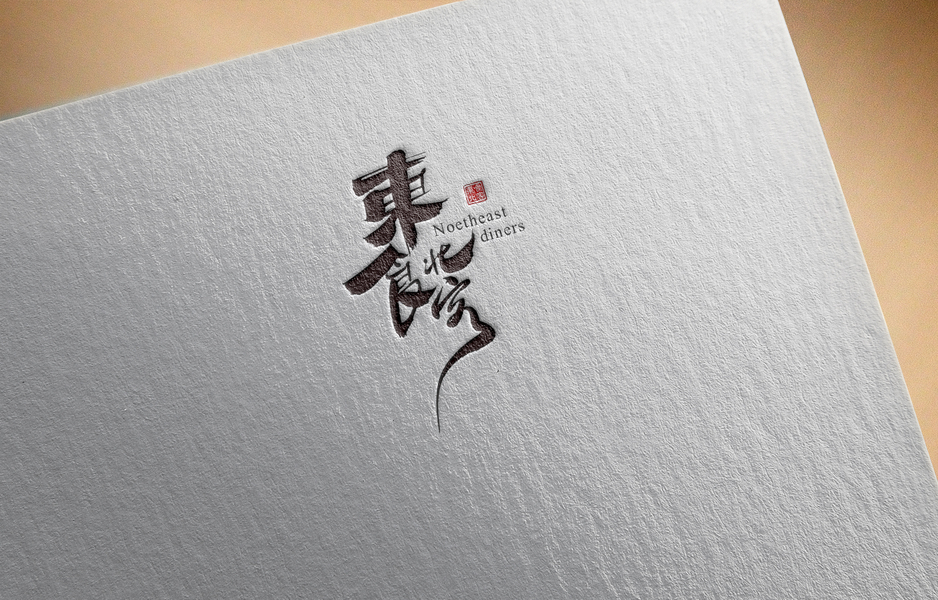 東北
食客
Noetheast
diners